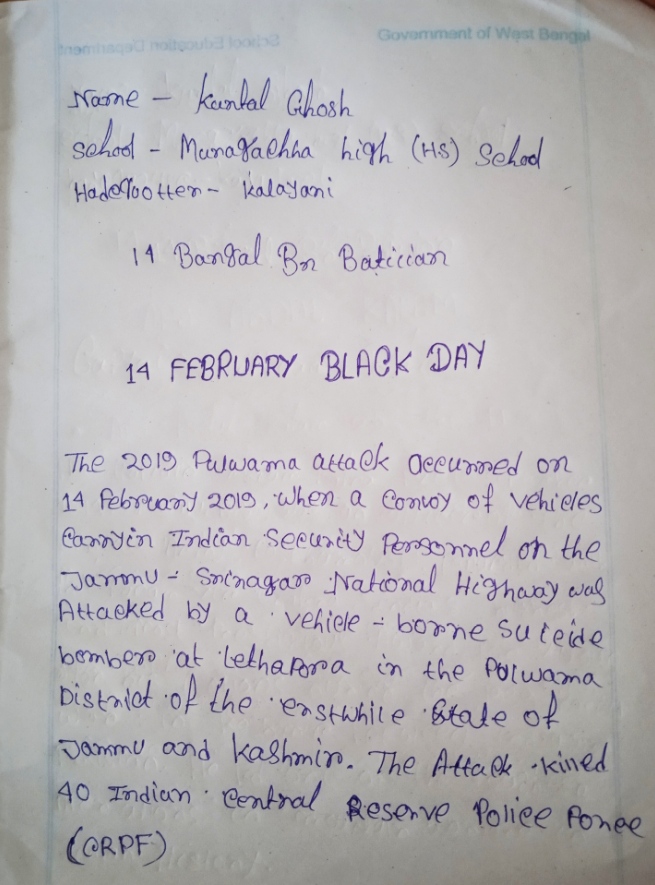 School Education Department
Government of West Bengal
Name - Kuntal Ghosh
School - Muragachha high (HS) School
Hadqootter - Kalayani
14 Bangal Bn Batician
14 FEBRUARY BLACK DAY
The 2019 Pulwama attack Occurred on
14 February 2019, When a Convoy of Vehicles
Carryin Indian Security Personnel on the
Jammu - Srinagar National Highway was
Attacked by a vehicle - borne Suicide
bomber at Lethapora in the Pulwama
District of the erstwhile State of
Jammu and Kashmir. The Attack killed
40 Indian Central Reserve Police Force
(CRPF)